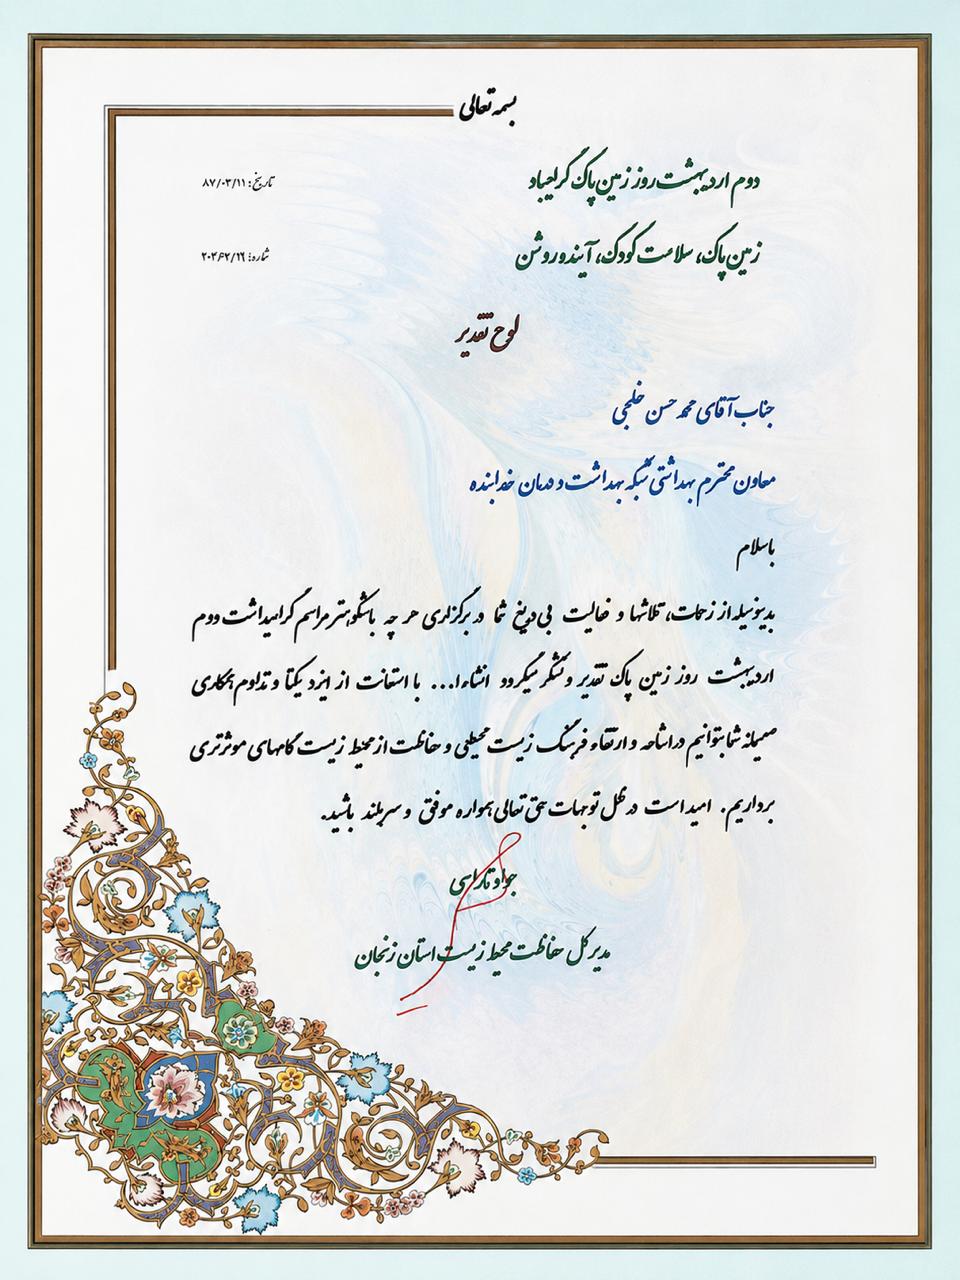 بسمه تعالی
دوم اردیبهشت روز زمین پاک گرامیباد
تاریخ: ۸۷/۰۳/۱۱
زمین پاک، سلامت کودک، آینده روشن
شماره:
لوح تقدیر
جناب آقای محمد حسن خلجی
معاون محترم بهداشتی شبکه بهداشت و درمان خدابنده
باسلام
بدینوسیله از زحمات، تلاشها و فعالیت بی دریغ شما در برگزاری هر چه باشکوهتر مراسم گرامیداشت دوم
اردیبهشت روز زمین پاک تقدیر و تشکر میگردد انشاءا... با استعانت از ایزد یکتا و تداوم همکاری
صمیمانه شما بتوانیم در اشاعه و ارتقاء فرهنگ زیست محیطی و حفاظت از محیط زیست گامهای موثرتری
برداریم. امید است در ظل توجهات حق تعالی همواره موفق و سربلند باشید.
جواد
مدیر کل حفاظت محیط زیست استان زنجان